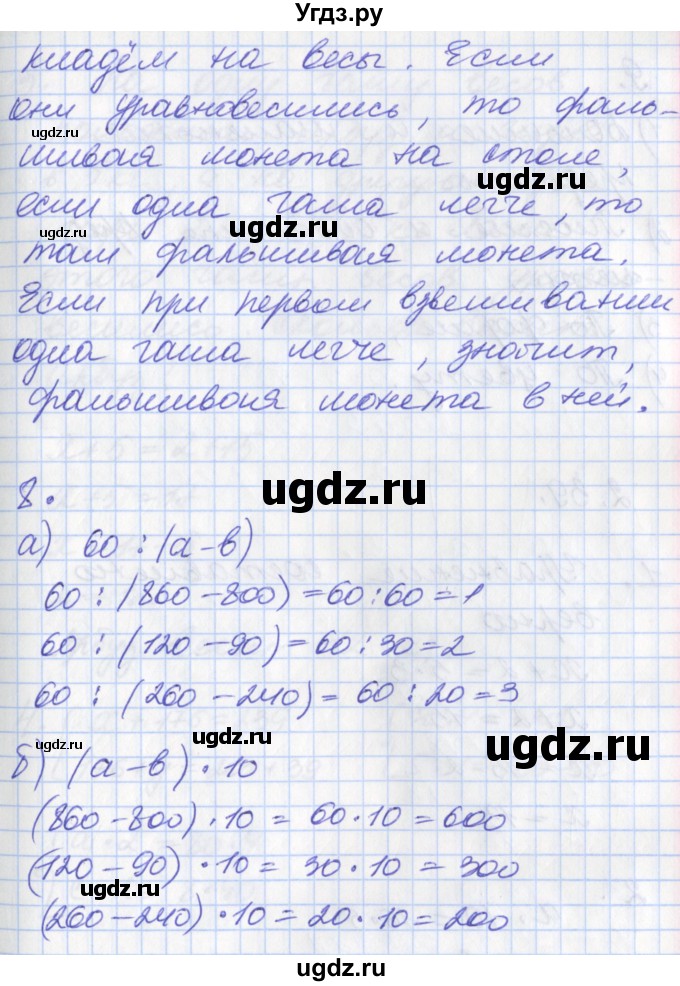 Угдз.ру
кладём на весы. Если
они уравновесились, то фаль-
ugdz.ru ugdz.ru
шивая монета на столе,
ugdz.ru
если одна чаша легче, то
ugdz.ru ugdz.ru
там фальшивая монета.
Если при первом взвешивании
одна чаша легче, значит,
фальшивая монета в ней.
ugdz.ru
8.
а) 60 : (а-в)
60 : (860-800)=60:60=1
60 : (120-90)=60:30=2
60 : (260-240)= 60:20=3
ugdz.ru
б) (а-в)·10
(860-800)·10 = 60·10=600
(120-90)·10 = 30·10=300
ugdz.ru
(260-240)·10=20·10=200
ugdz.ru